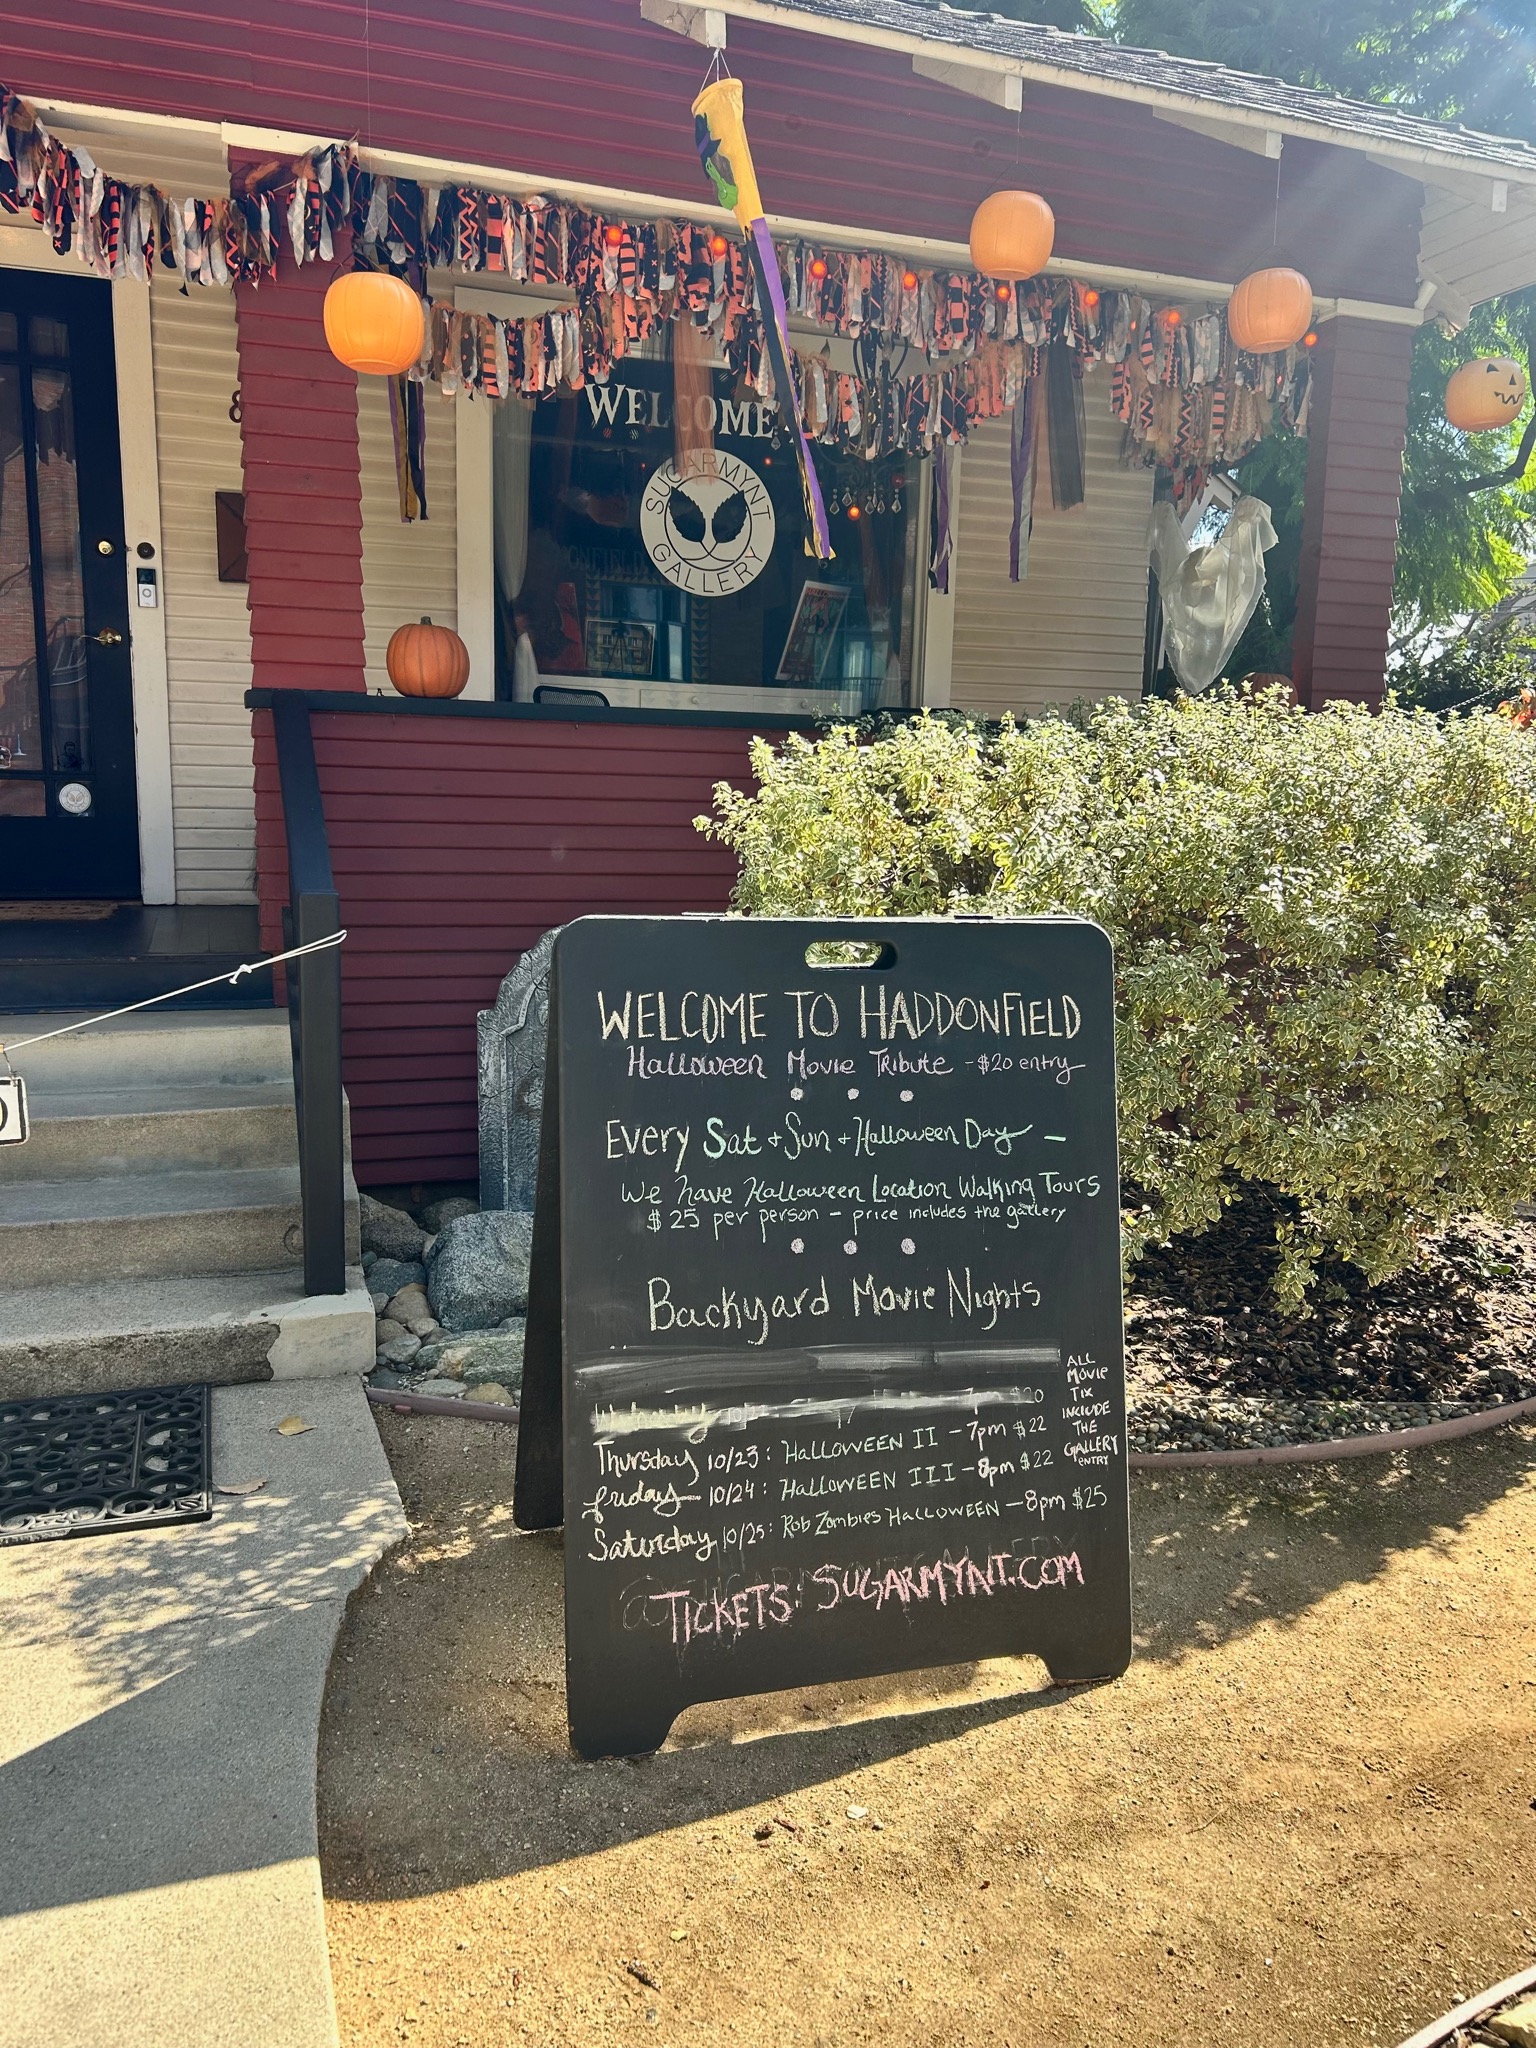 8
WELCOME
SUGARMYNT
GALLERY
WELCOME TO HADDONFIELD
Halloween Movie Tribute - $20 entry
Every Sat + Sun + Halloween Day -
We have Halloween Location Walking Tours
$25 per person - price includes the gallery
Backyard Movie Nights
Wednesday 10/22 7pm $20
Thursday 10/23: HALLOWEEN II - 7pm $22
Friday - 10/24: HALLOWEEN III - 8pm $22
Saturday 10/25: Rob Zombies HALLOWEEN - 8pm $25
ALL
MOVIE
TIX
INCLUDE
THE
GALLERY
ENTRY
TICKETS: SUGARMYNT.COM